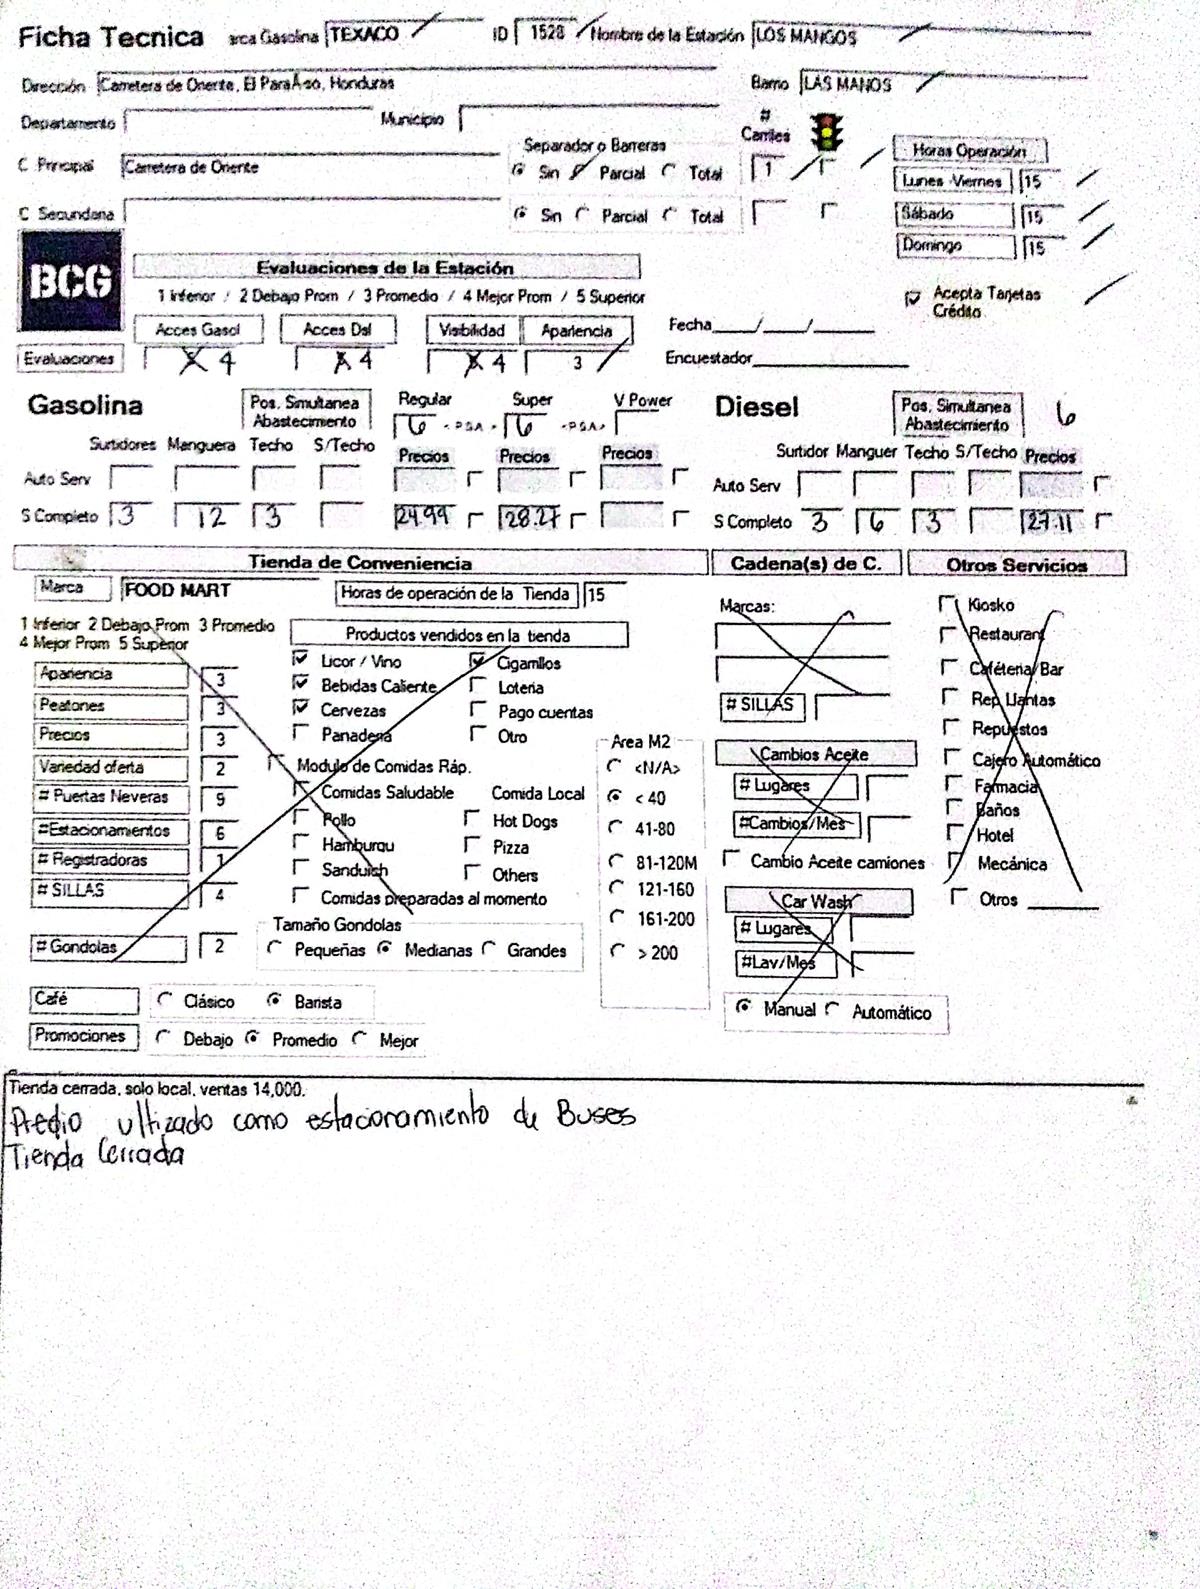 Ficha Tecnica arca Gasolina TEXACO ID 1528 Nombre de la Estación LOS MANGOS
Dirección Carretera de Oriente, El ParaÃ­so, Honduras Barrio LAS MANOS
Departamento Municipio # Carriles
C Principal Carretera de Oriente Separador o Barreras Sin Parcial Total 1
Horas Operación
Lunes -Viernes 15
C Secundaria Sin Parcial Total
Sábado 15
Domingo 15
BCG
Evaluaciones de la Estación
1 Inferior / 2 Debajo Prom / 3 Promedio / 4 Mejor Prom / 5 Superior
Acepta Tarjetas Crédito
Acces Gasol Acces Dsl Visibilidad Apariencia Fecha___/___/____
Evaluaciones 4 4 4 3 Encuestador
Gasolina Pos. Simultanea Abastecimiento Regular 6 <PSA> Super 6 <PSA> V Power
Diesel Pos. Simultanea Abastecimiento 6
Surtidores Manguera Techo S/Techo Precios Precios Precios
Surtidor Manguer Techo S/Techo Precios
Auto Serv
Auto Serv
S Completo 3 12 3 24.99 28.27
S Completo 3 6 3 27.11
Tienda de Conveniencia Cadena(s) de C. Otros Servicios
Marca FOOD MART Horas de operación de la Tienda 15
1 Inferior 2 Debajo Prom 3 Promedio
4 Mejor Prom 5 Superior
Productos vendidos en la tienda
Apariencia 3
Peatones 3
Precios 3
Variedad oferta 2
# Puertas Neveras 9
#Estacionamientos 6
# Registradoras 1
# SILLAS 4
# Gondolas 2
Licor / Vino Cigarrillos
Bebidas Caliente Loteria
Cervezas Pago cuentas
Panaderia Otro
Modulo de Comidas Ráp.
Comidas Saludable Comida Local
Pollo Hot Dogs
Hamburgu Pizza
Sandwich Others
Comidas preparadas al momento
Tamaño Gondolas
Pequeñas Medianas Grandes
Area M2
<N/A>
< 40
41-80
81-120M
121-160
161-200
> 200
Marcas:
# SILLAS
Cambios Aceite
# Lugares
#Cambios/Mes
Cambio Aceite camiones
Car Wash
# Lugares
#Lav/Mes
Manual Automático
Kiosko
Restaurant
Cafétena/Bar
Rep Llantas
Repuestos
Cajero Automático
Farmacia
Baños
Hotel
Mecánica
Otros
Café Clásico Barista
Promociones Debajo Promedio Mejor
Tienda cerrada, solo local, ventas 14,000.
Predio ultizado como estacionamiento de Buses
Tienda Cerrada